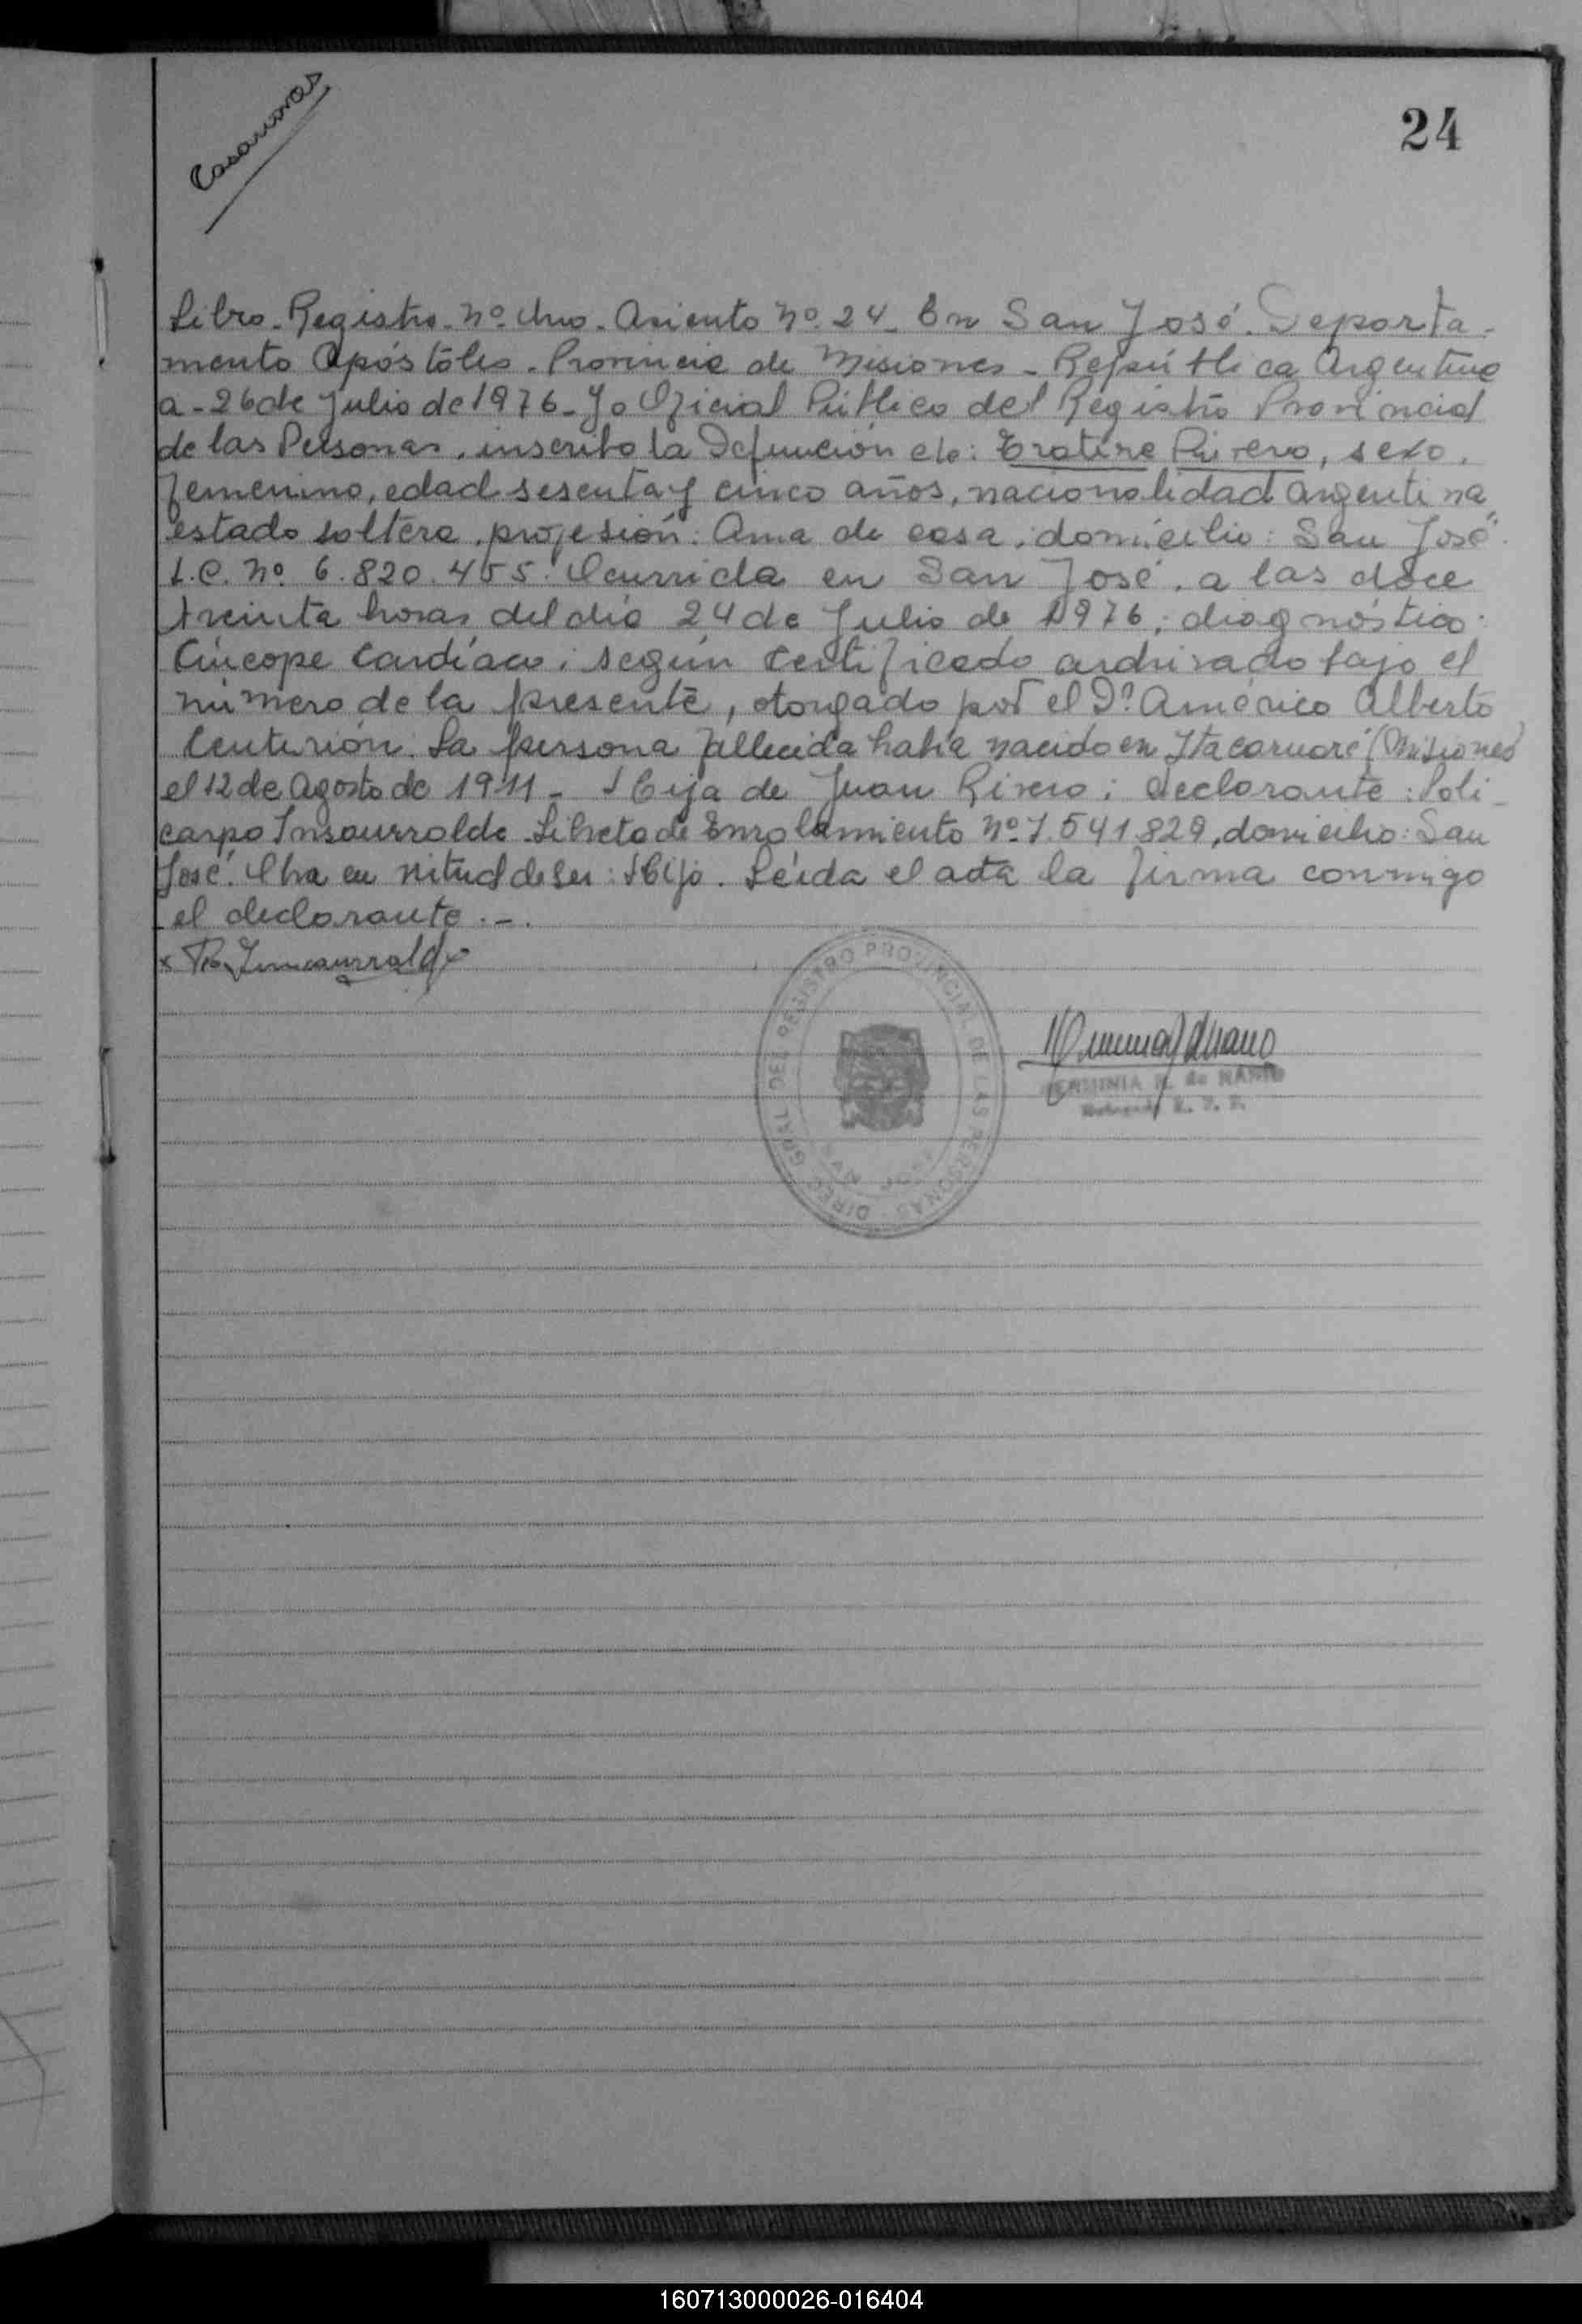 24
Libro-Registro-Nº Uno-Asiento Nº 24- En San José. Departa-
mento Apóstoles. Provincia de Misiones- República Argentina
a-26 de Julio de 1976- Yo Oficial Público del Registro Provincial
de las Personas, inscribo la Defunción de: Rivero, sexo.
femenino, edad sesenta y cinco años, nacionalidad argentina,
estado soltera, profesión: Ama de casa; domicilio: San José.
L.C. Nº 6.820.455. Ocurrida en San José, a las doce
treinta horas del día 24 de Julio de 1976; diagnóstico:
Cíncope Cardíaco; según certificado archivado bajo el
número de la presente, otorgado por el Dº. Américo Alberto
Centurión. La persona fallecida había nacido en Itacaruaré (Misiones)
el 12 de Agosto de 1911- Hija de Juan Rivero; declarante: Poli-
carpo Insaurralde Libreta de Enrolamiento Nº 7.541.829, domicilio: San
José. Obra en vitud de ser: Hijo. Leída el acta la firma conmigo
el declarante.-.
DIREC. GRAL. DEL REGISTRO PROVINCIAL DE LAS PERSONAS
SAN JOSE
HERMINIA R. de
160713000026-016404